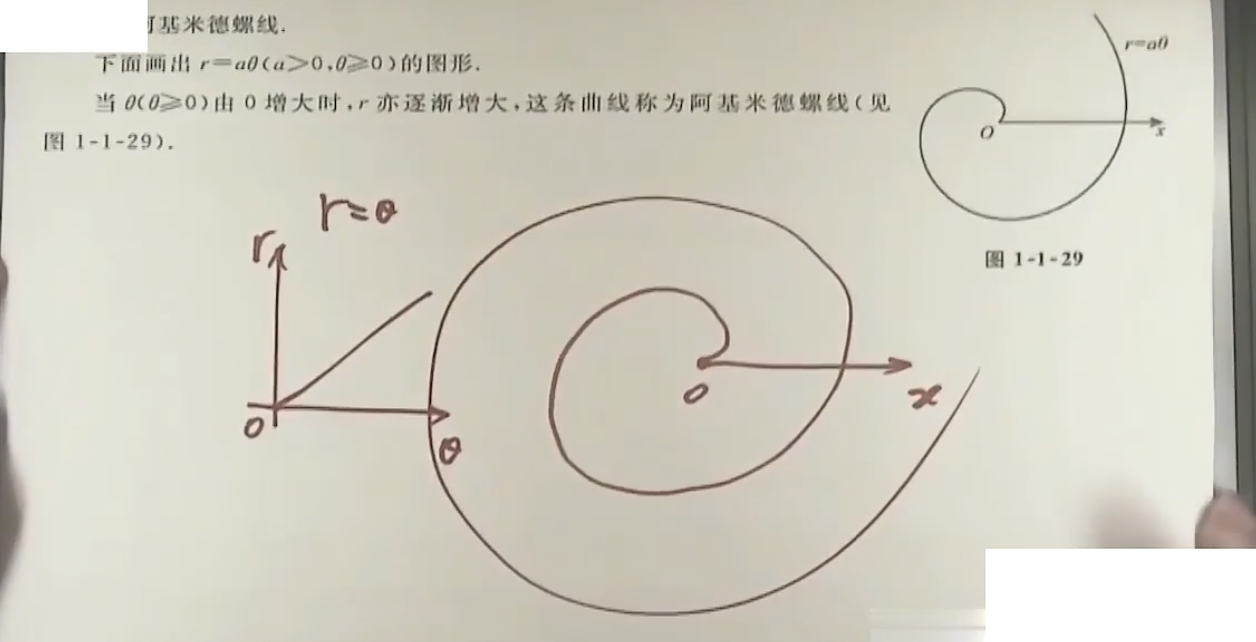 阿基米德螺线.
下面画出 r=aθ(a>0,θ⩾0)的图形.
当 θ(θ⩾0)由 0 增大时,r 亦逐渐增大,这条曲线称为阿基米德螺线(见
图 1-1-29).
r=aθ
O
x
图 1-1-29
r=θ
r
O
θ
O
x